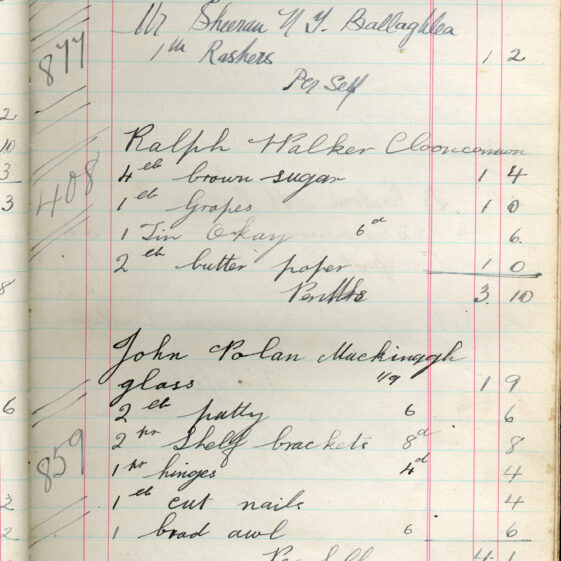 877
Mr Sheeran N.Y. Ballaghlea
1 lb Rashers 1 2
Per Self
408
Ralph Walker Clooncannon
4 lb brown sugar 1 4
1 lb Grapes 1 0
1 Tin Okay 6d 6
2 lb butter paper 1 0
Per Mrs 3. 10
859
John Nolan Muckinagh
glass 1/9 1 9
2 lb putty 6 6
2 pr Shelf brackets 8d 8
1 pr hinges 4d 4
1 lb cut nails 4
1 brad awl 6 6
Per Self 4 1
2
10
3
3
8
6
3
2